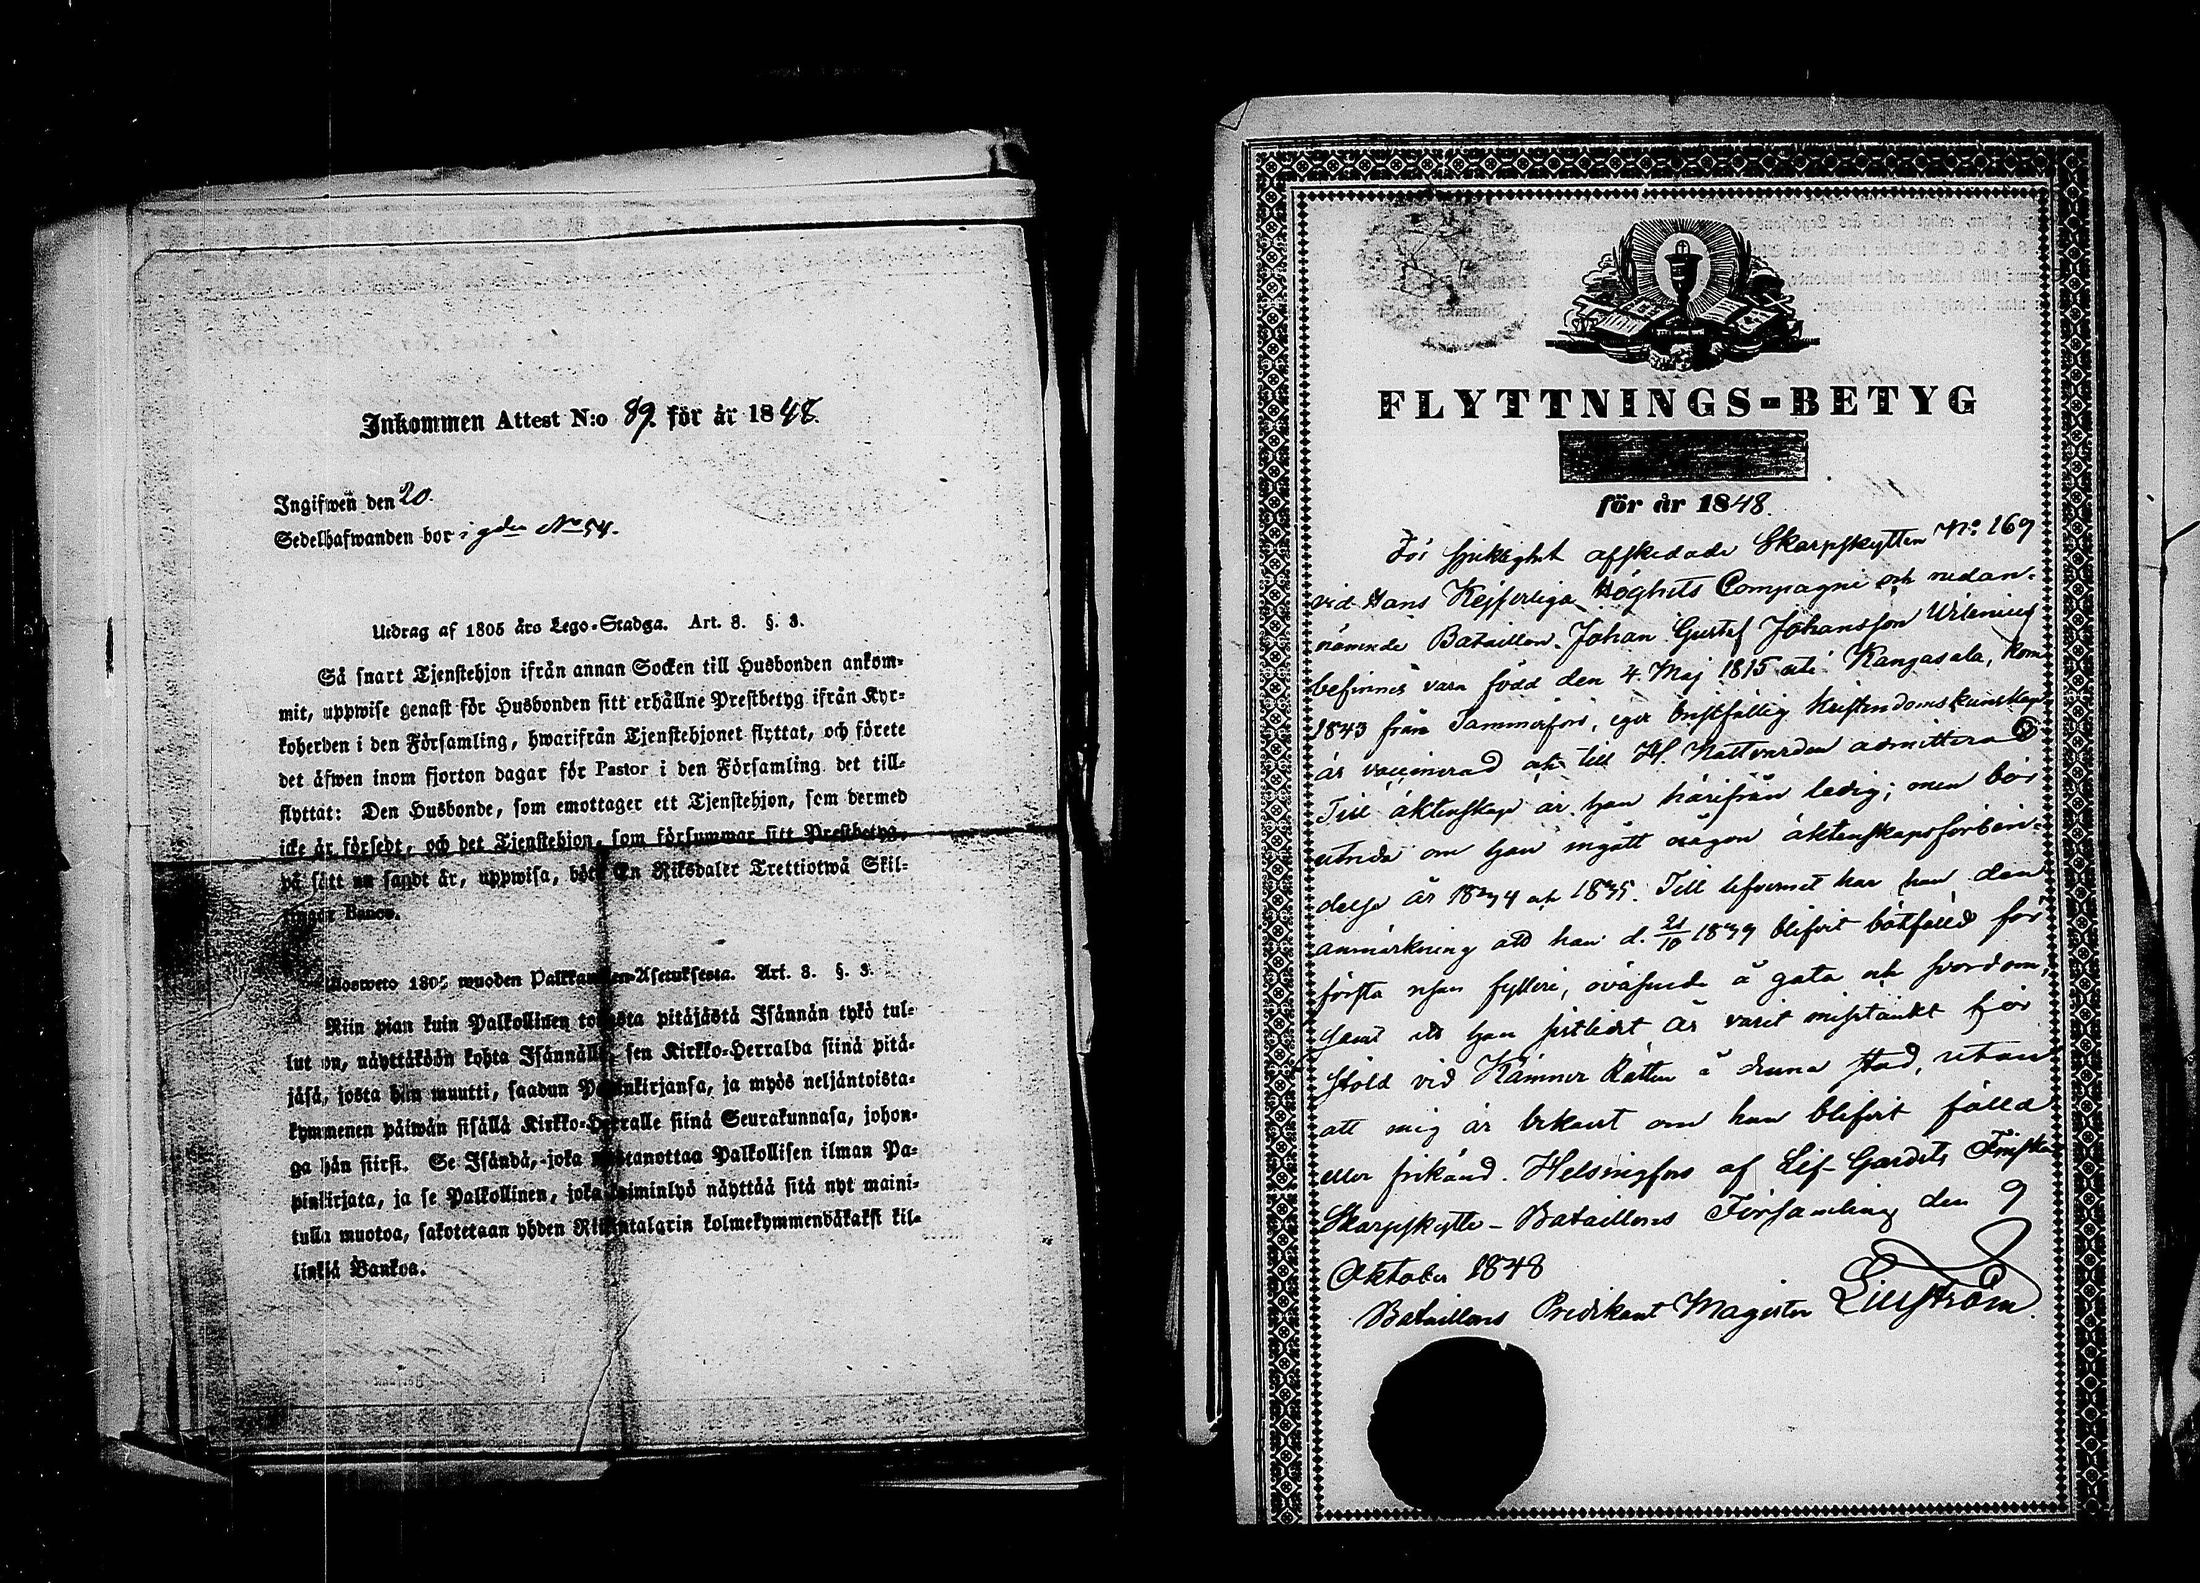 Inkommen Attest N:o 89. för år 1848.
Ingifwen den 20.
Sedelhafwanden bor i gden No 54.
Utdrag af 1805 års Lego-Stadga. Art. 8. §. 3.
Så snart Tjenstehjon ifrån annan Socken till Husbonden ankom-
mit, uppwise genast för Husbonden sitt erhållne Prestbetyg ifrån Kyr-
koherden i den Församling, hwarifrån Tjenstehjonet flyttat, och förete
det äfwen inom fjorton dagar för Pastor i den Församling det till-
flyttat: Den Husbonde, som emottager ett Tjenstehjon, som dermed
icke är försedt, och det Tjenstehjon, som försummar sitt Prestbetyg,
på sätt nu sagdt är, uppwisa, böte En Riksdaler Trettiotwå Skil-
lingar Banco.
Ulosweto 1805 wuoden Palkkaus Asetuksesta. Art. 8. §. 3.
Niin pian kuin Palkollinen toisesta pitäjästä Isännän tykö tul-
lut on, näyttäköön kohta Isännälle, sen Kirkko-Herralda siinä pitä-
jäsä, josta hän muutti, saadun Papinkirjansa, ja myös neljäntoista-
kymmenen päiwän sisällä Kirkko-Herralle siinä Seurakunnasa, johon-
ga hän siirsi. Se Isändä, joka wastanottaa Palkollisen ilman Pa-
pinkirjata, ja se Palkollinen, joka laiminlyö näyttää sitä nyt maini-
tulla muotoa, sakotetaan yhden Riikintalarin kolmekymmendäkaksi kil-
linkiä Bankoa.
FLYTTNINGS-BETYG
för år 1848.
För sjuklighet afskedade Skarpskytten No 169
vid Hans Kejserliga Höghets Compagni och nedan-
nämnde Bataillon Johan Gustaf Johansson Wilenius
befinnes vara född den 4 Maj 1815 uti Kangasala, kom
1843 från Tammerfors, eger bristfällig kristendomskunskap
är vaccinerad och till H. Nattvarden admitterad
Till äktenskap är han härifrån ledig; men bör
utreda om han ingått någon äktenskapsförbin-
delse år 1834 och 1835. Till lefvernet har han den
anmärkning att han d. 21/10 1839 blifvit bötfälld för
första resan fylleri, oväsende å gata och svordom,
samt att han sistlidet år varit misstänkt för
stöld vid Kämner Rätten i denna stad, utan
att mig är bekant om han blifvit fälld
eller frikänd. Helsingfors af Lif-Gardets Finska
Skarpskytte-Bataillons Församling den 9
Oktober 1848
Bataillons Predikant Magister Liljström